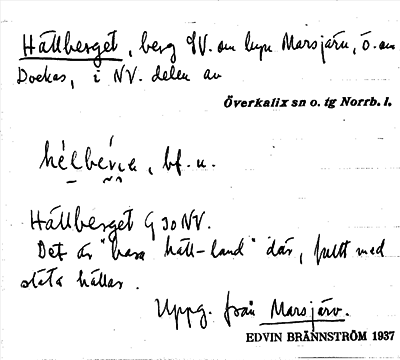 Hällberget, berg NV. om byn Marsjärv, ö. om
Dockas, i NV. delen av
Överkalix sn o. tg Norrb. l.
bf. u.
Hällberget G 30 NV.
Det är "bara häll-land" där, fullt med
släta hällar.
Uppg. från Marsjärv.
EDVIN BRÄNNSTRÖM 1937